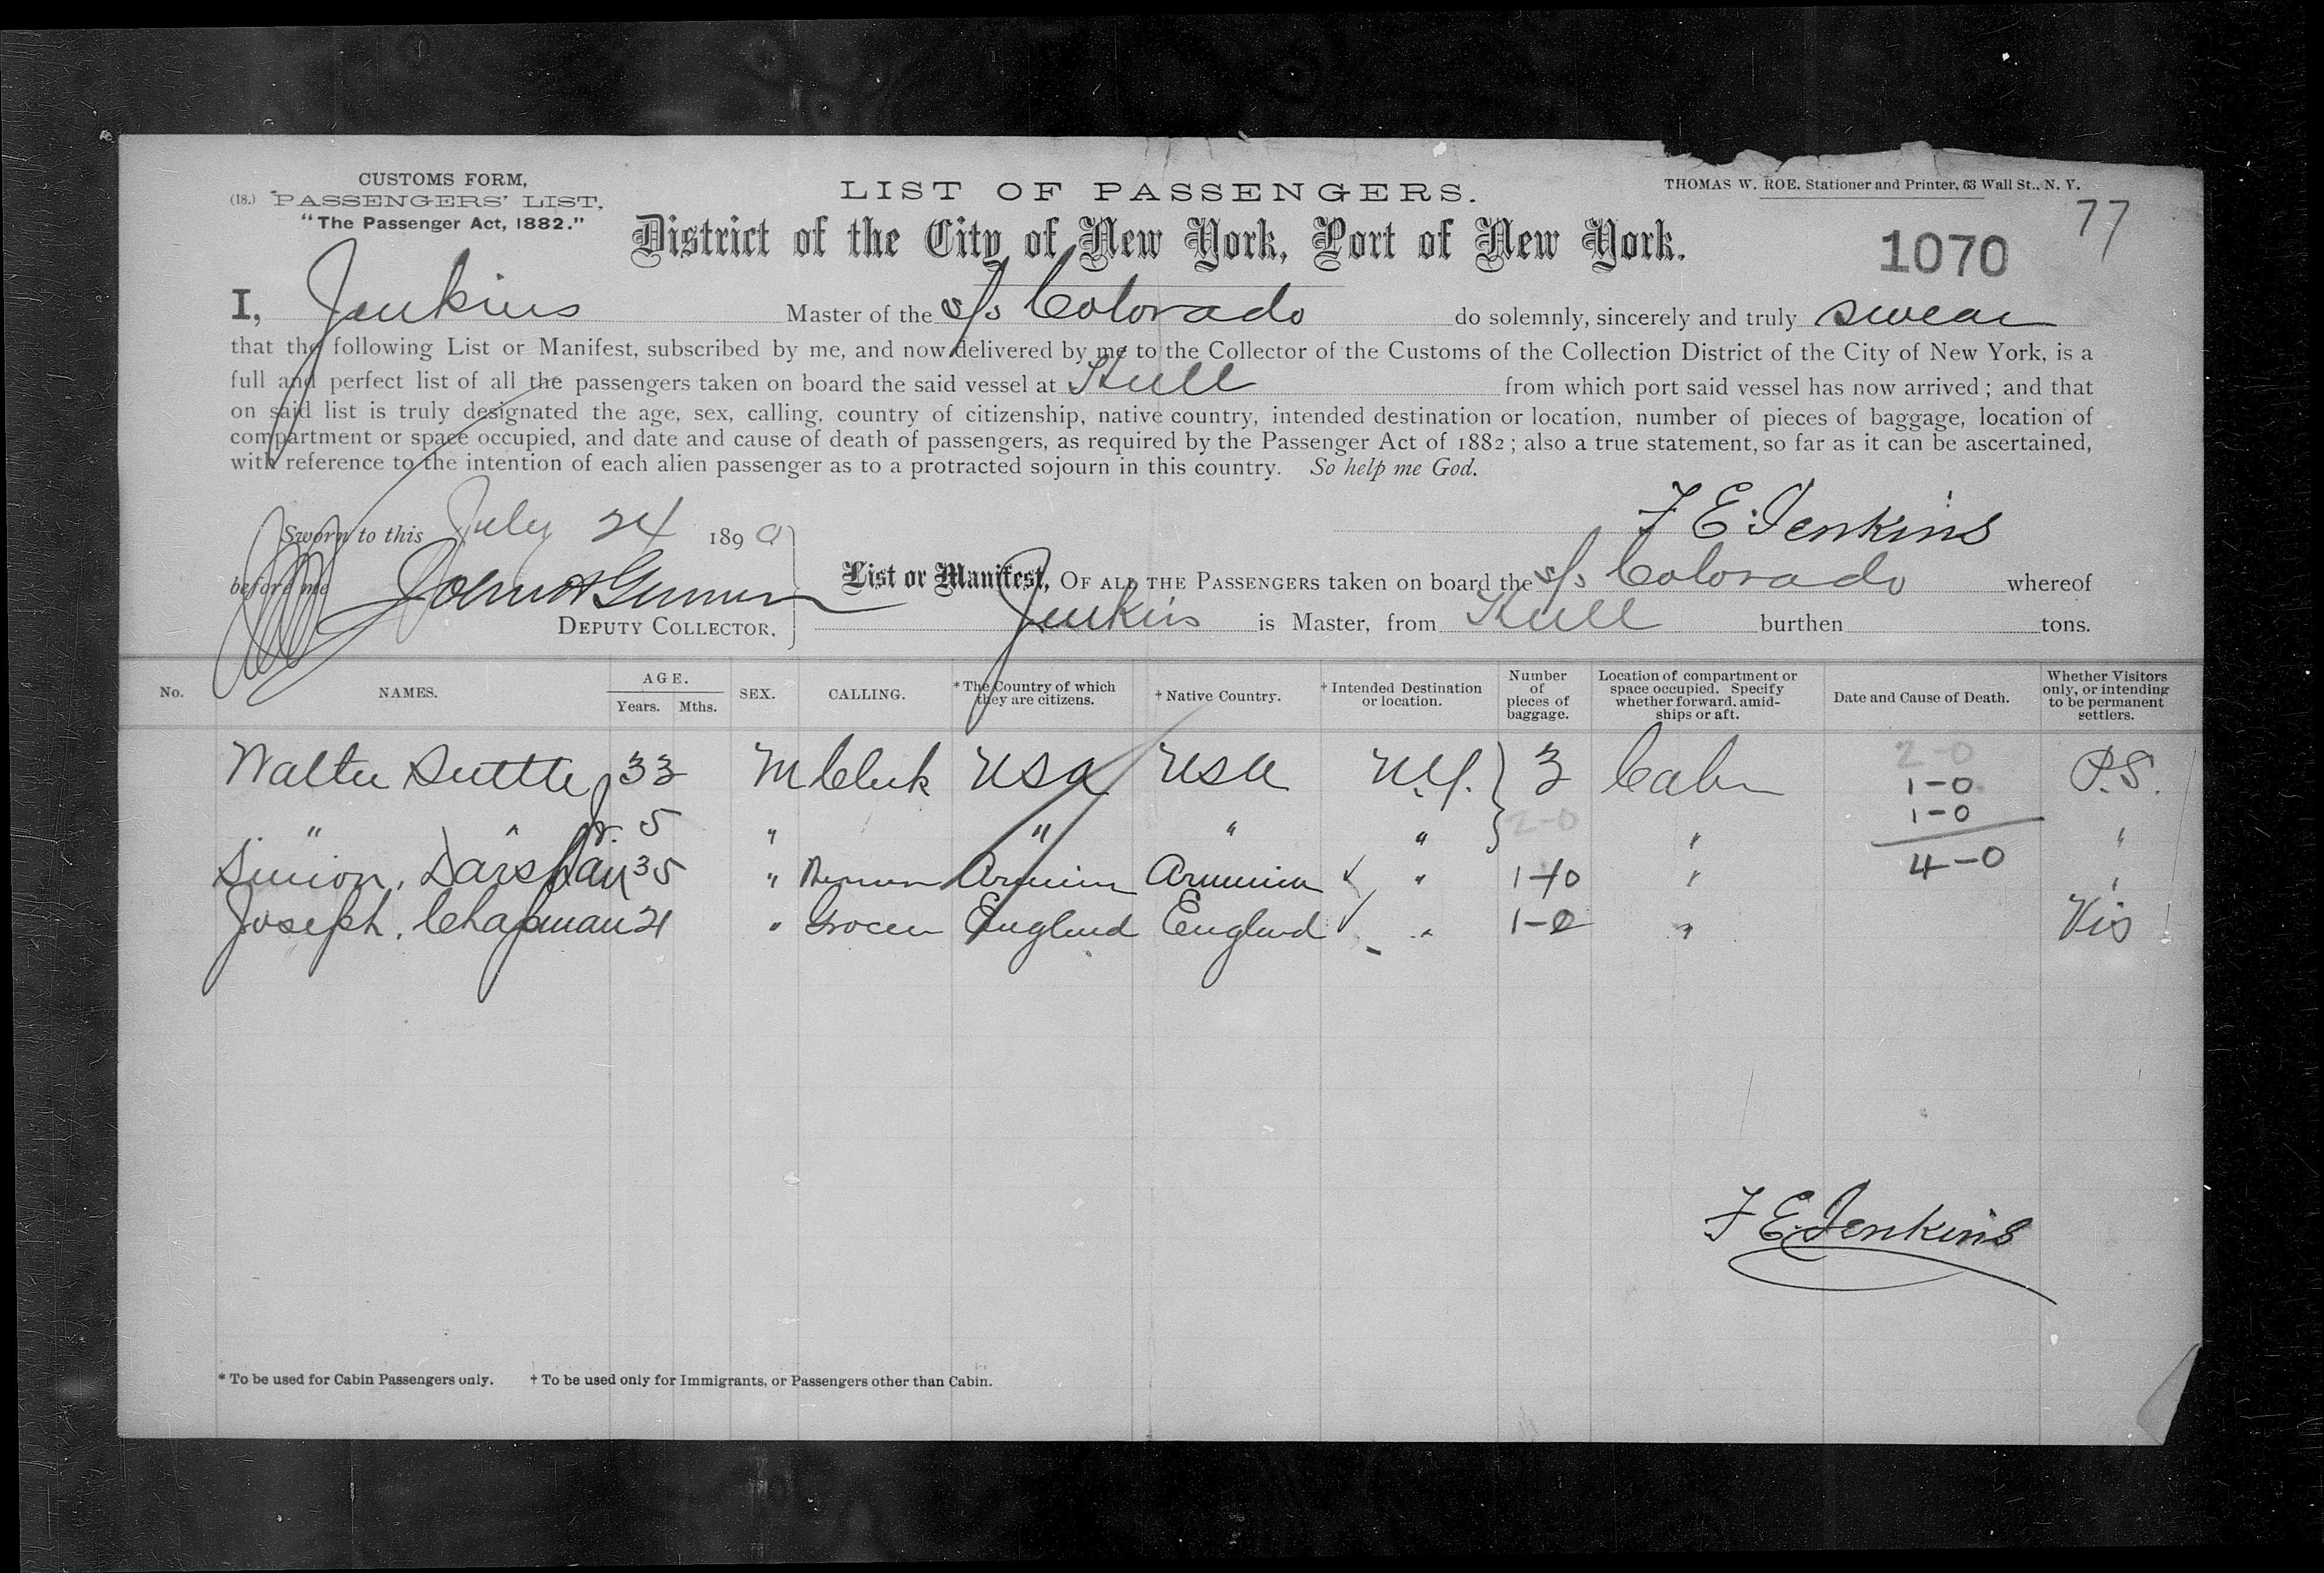 CUSTOMS FORM,
(18.) PASSENGERS' LIST,
"The Passenger Act, 1882."
LIST OF PASSENGERS.
THOMAS W. ROE. Stationer and Printer, 63 Wall St., N. Y.
77
District of the City of New York, Port of New York.
1070
I, Jenkins Master of the s/s Colorado do solemnly, sincerely and truly swear
that the following List or Manifest, subscribed by me, and now delivered by me to the Collector of the Customs of the Collection District of the City of New York, is a
full and perfect list of all the passengers taken on board the said vessel at Hull from which port said vessel has now arrived; and that
on said list is truly designated the age, sex, calling, country of citizenship, native country, intended destination or location, number of pieces of baggage, location of
compartment or space occupied, and date and cause of death of passengers, as required by the Passenger Act of 1882; also a true statement, so far as it can be ascertained,
with reference to the intention of each alien passenger as to a protracted sojourn in this country. So help me God.
F E Jenkins
Sworn to this July 24 1890
before me
DEPUTY COLLECTOR.
List or Manifest, OF ALL THE PASSENGERS taken on board the s/s Colorado whereof
Jenkins is Master, from Hull burthen tons.
No. NAMES. AGE. Years. Mths. SEX. CALLING. *The Country of which they are citizens. †Native Country. †Intended Destination or location. Number of pieces of baggage. Location of compartment or space occupied. Specify whether forward, amidships or aft. Date and Cause of Death. Whether Visitors only, or intending to be permanent settlers.
Walter Suttle 33 M Clerk USA USA N.Y. 3 Cabin 2-0 1-0 P.S.
" " Jr. 5 " " " " 2-0 " 1-0 "
35 " Armenia " 1-0 " 4-0 "
Joseph. Chapman 21 " Grocer England England " 1-0 " Vis
F E Jenkins
* To be used for Cabin Passengers only. † To be used only for Immigrants, or Passengers other than Cabin.